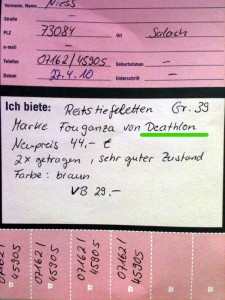 Vorname, Name Niess
Straße –
PLZ 73084 Ort Salach
e-mail –
Telefon 07162/45905 Geburtsdatum –
Datum 27.4.10 Unterschrift –
Ich biete: Reitstiefeletten Gr. 39
Marke Fouganza von Deathlon
Neupreis 44,- €
2x getragen, sehr guter Zustand
Farbe: braun
VB 29.-
07162/
45905
07162/
45905
07162/
45905
07162/
45905